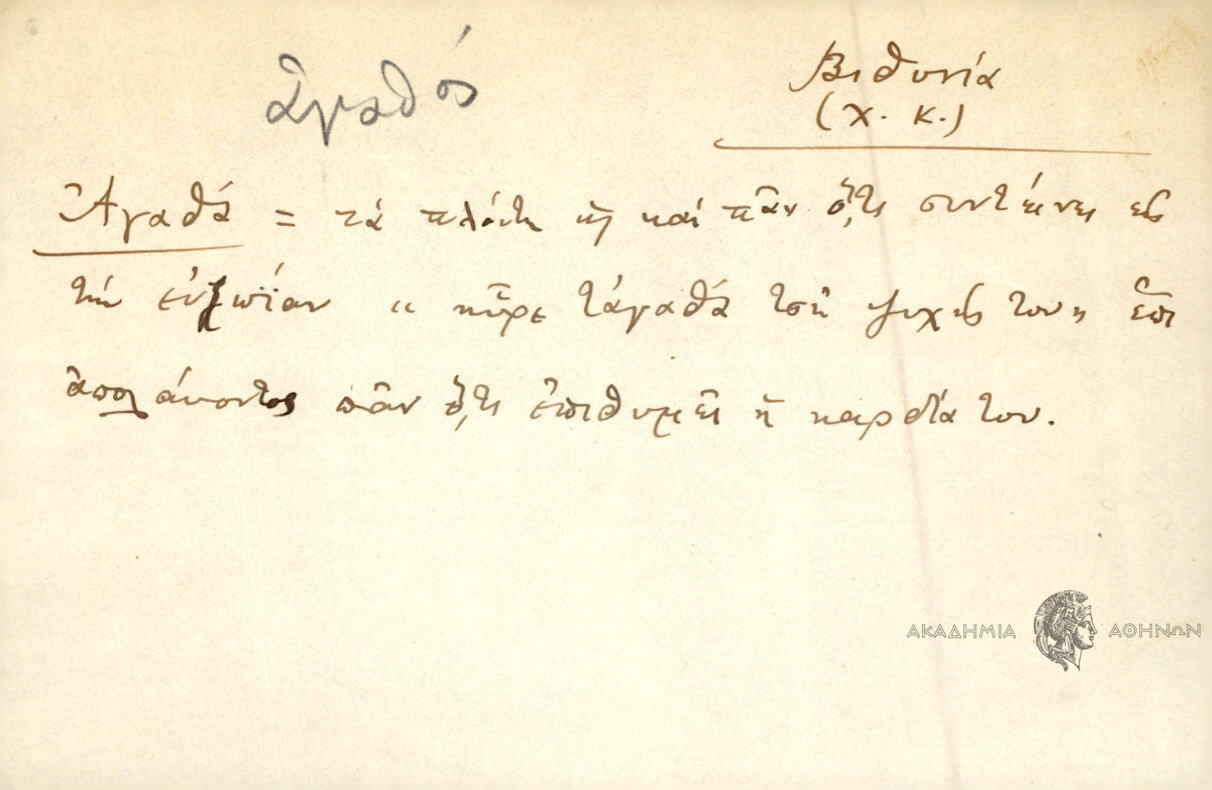 ἀγαθός
Βιθυνία
(Χ. Κ.)
Ἀγαθά = τὰ πλούτη ἢ καὶ πᾶν ὅ,τι συντείνει εἰς
τὴν εὐζωΐαν " ηὗρε τἀγαθά τσῆ ψυχῆς του " ἐπὶ
ἀπολαύοντος πᾶν ὅ,τι ἐπιθυμεῖ ἡ καρδία του.
ΑΚΑΔΗΜΙΑ ΑΘΗΝΩΝ